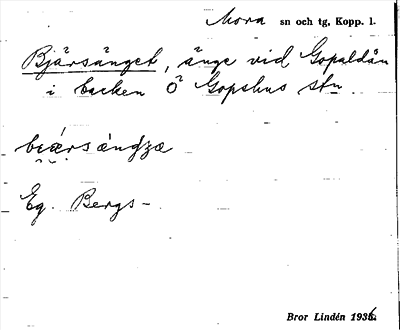 Mora sn och tg, Kopp. l.
Bjärsänget, änge vid Gopaldån
i backen Ö Gopshus stn.
Eg. Bergs-
Bror Lindén 1936.